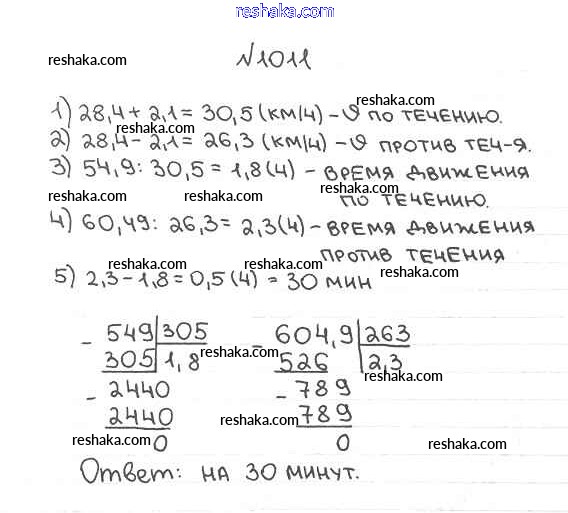 reshaka.com
reshaka.com
N1011
reshaka.com
1) 28,4 + 2,1 = 30,5 (км/ч) - ϑ по течению.
reshaka.com
2) 28,4 - 2,1 = 26,3 (км/ч) - ϑ против теч-я.
3) 54,9 : 30,5 = 1,8 (ч) - время движения
reshaka.com reshaka.com reshaka.com
по течению.
4) 60,49 : 26,3 = 2,3 (ч) - время движения
против течения
reshaka.com reshaka.com reshaka.com
5) 2,3 - 1,8 = 0,5 (ч) = 30 мин
- 549 305 - 604,9 263
305 1,8 reshaka.com 526 2,3
reshaka.com
- 2440 - 789
2440 reshaka.com 789 reshaka.com
reshaka.com 0 0 reshaka.com
Ответ: на 30 минут.
reshaka.com